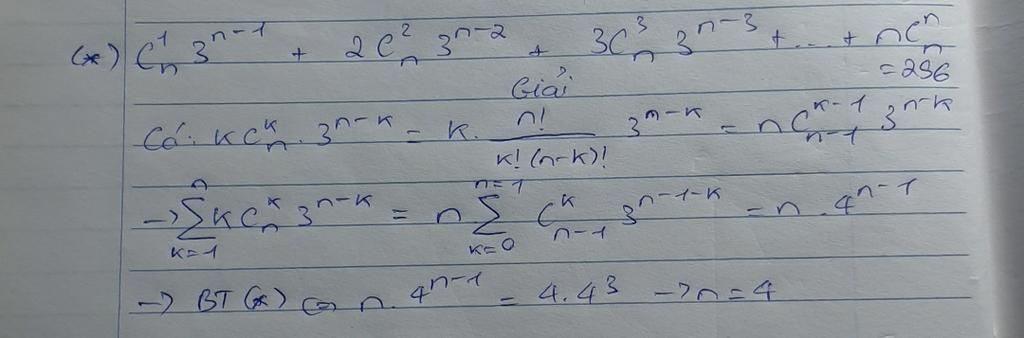 (*) C_n^1 3^{n-1} + 2C_n^2 3^{n-2} + 3C_n^3 3^{n-3} + ... + nC_n^n
= 256
Giải
Có: kC_n^k . 3^{n-k} = k. \frac{n!}{k!(n-k)!} 3^{n-k} = nC_{n-1}^{k-1} 3^{n-k}
→ \sum_{k=1}^{n} kC_n^k 3^{n-k} = n \sum_{k=0}^{n=1} C_{n-1}^k 3^{n-1-k} = n . 4^{n-1}
→ BT(*) ⇔ n. 4^{n-1} = 4.4^3 → n = 4